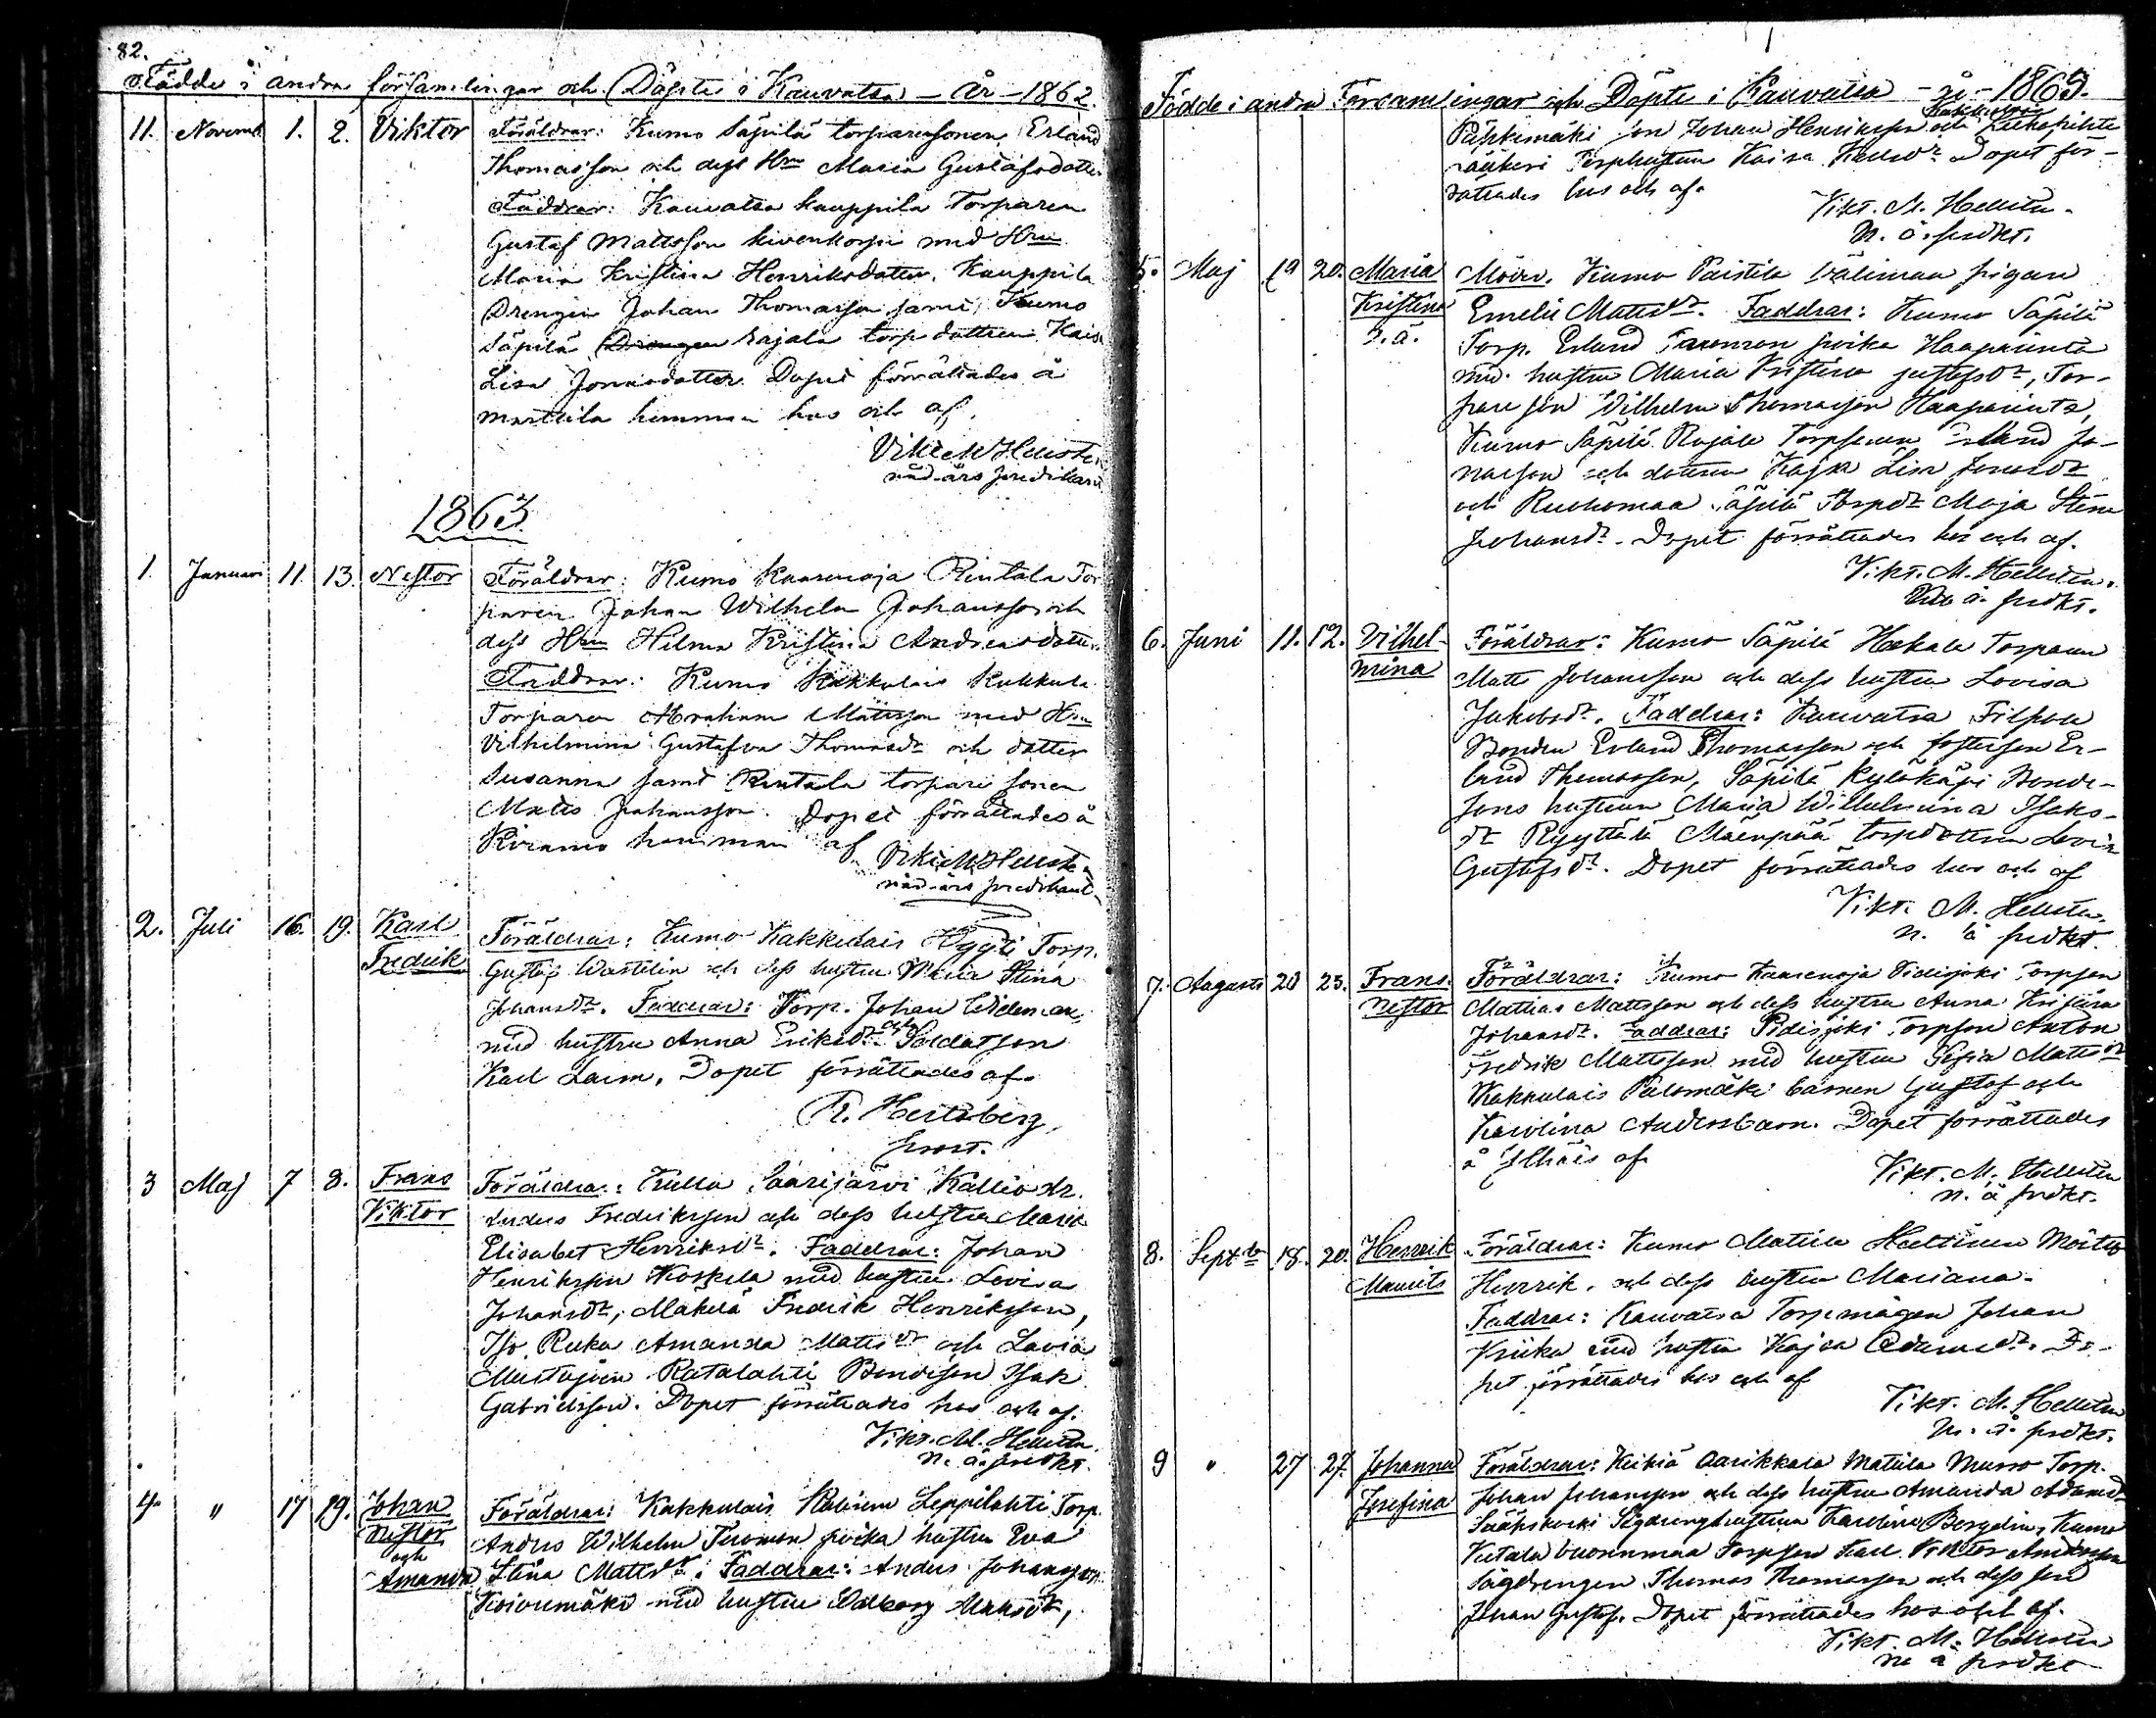 82.
Födde i andra församlingar och Döpte i Kauvatsa – År – 1862.
11. Novemb. 1. 2. Viktor Föräldrar: Kumo Säpilä torparesonen Erland
Thomasson och dess Hru Maria Gustafsdotter
Faddrar: Kauvatsa Kauppila Torparen
Gustaf Mattsson Kivenkorpi med Hru
Maria Kristina Henriksdotter. Kauppila
Drengen Johan Thomasson samt Kumo
Säpilä Drengen Rajala torp dottren Kaisa
Lisa Jonasdotter. Dopet förrättades å
Marttila hemman hos och af,
Vikt. M Hellsten
nåd. års predikant
1863
1. Januari 11. 13. Nestor Föräldrar: Kumo Kaurenoja Rintala Tor
paren Johan Wilhelm Johansson och
dess Hru Helma Kristina Andreasdotter
Faddrar: Kumo Kakkulais Kukkula
Torparen Abraham Mattsson med Hru
Vilhelmina Gustafva Thomasdr och dotter
Susanna samt Rintala torpare sonen
Matts Johansson. Dopet förrättades å
hemman af
Vikt M Hellsten
nåd. års predikant
2. Juli 16. 19. Karl
Fredrik
Föräldrar: Kumo Kakkulais Torp.
Gustaf Wastelin och dess hustru Maria Stina
Johansdr. Faddrar: Torp. Johan Wideman
med hustru Anna Eriksdr och Soldatson
Karl Larm. Dopet förrättades af.
R. Hertzberg,
Prost.
3 Maj 7 8. Frans
Viktor
Föräldrar: Kulla Saarijärvi Kallio dr.
Anders Fredriksson och dess hustru Maria
Elisabet Henriksdr. Faddrar: Johan
Henriksson Koskela med hustru Lovisa
Johansdr, Mäkelä Fredrik Henriksson,
Iso Ruka Amanda Mattsdr och Lavia
Mustajoen Ratalahti Bondeson Isak
Gabrielsson. Dopet förrättades hos och af.
Vikt. M. Hellsten.
n. å. predkt.
4. " 17 19. Johan
Nestor
och
Amanda
Föräldrar: Kakkulais Leppilahti Torp.
Anders Wilhelm poika hustru Eva
Stina Mattsdr: Faddrar: Anders Johansson
Koivumäki med hustru
Födde i andra Församlingar och Döpte i Kauvatsa – år – 1863.
son Johan Henriksson och
Torphustrun Kaisa. Dopet för-
rättades hos och af.
Vikt. M. Hellsten.
n. å. predkt.
5. Maj 19 20. Maria
Kristina
o. ä.
Modr. Kumo Paistila Välimaa pigan
Emelie Mattsdr. Faddrar: Kumo Säpilä
Torp. Erland poika Haaparinta
med hustru Maria Kristina Gustafsdr, Tor-
pare son Wilhelm Thomasson Haaparinta,
Kumo Säpilä Rajala Torparen Erland Jo-
nasson och dottren Kajsa Lisa Jonasdr
och Ruohomaa Säpilä Torpdr Maja Stina
Johansdr. Dopet förrättades hos och af.
Vikt. M. Hellsten.
å. predkt.
6. Juni 11. 12. Vilhel-
mina
Föräldrar: Kumo Säpilä Hakala Torparen
Matts Johansson och dess hustru Lovisa
Jakobsdr. Faddrar: Kauvatsa Filpou
Bonden Erland Thomasson och fosterson Er-
land Thomasson, Säpilä Kyläkäpi Bonde-
sons hustrun Maria Wilhelmina Isaks-
dr Ryyttälä Mäenpää torpdottren Lovisa
Gustafsdr. Dopet förrättades hos och af
Vikt. M. Hellsten.
n. å predkt.
7. Augusti 20 23. Frans
Nestor
Föräldrar: Kumo Kaurenoja Pidisjoki Torpson
Mattias Mattsson och dess hustru Anna Kristina
Johansdr. Faddrar: Pidisjoki Torpson Anton
Fredrik Mattsson med hustru Sofia Mattsdr
Kakkulais Palomäki barnen Gustaf och
Karolina Andersbarn. Dopet förrättades
å af
Vikt. M. Hellsten
n. å predkt.
8. Septbr 18. 20. Henrik
Maurits
Föräldrar: Kumo Mattila
Henrik. och dess hustru Mariana.
Faddrar: Kauvatsa Torpmågen Johan
Kriika med hustru Kajsa Adamsdr. Do-
pet förrättades hos och af
Vikt. M. Hellsten
n. å. predkt.
9 " 27 27. Johanna
Josefina
Föräldrar: Keikiä Aarikkala Mattila Murro Torp.
Johan Johansson och dess hustru Amanda Adamsdr
Sääkskoski Sågdrenghustrun Karolina Bergelin, Kumo
Kutala Vuorenmaa Torpson Karl Viktor Andersson
Sågdrengen Thomas Thomasson och dess son
Johan Gustaf. Dopet förrättades hos och af.
Vikt. M. Hellsten
n. å predkt